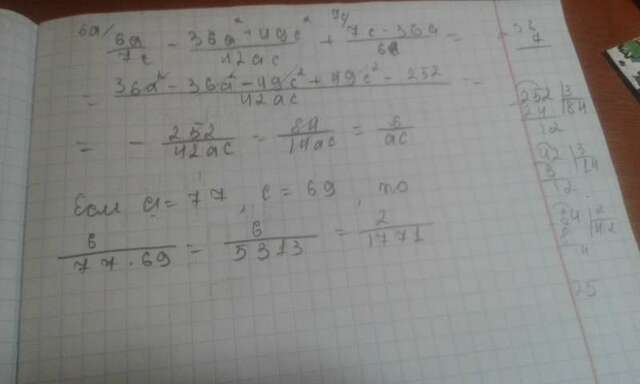 6a/ 6a/7c - (36a² + 49c²)/42ac + 7c - 36a/6a =
= (36a² - 36a² - 49c² + 49c² - 252)/42ac =
= - 252/42ac = 84/14ac = 6/ac
Если a = 77, c = 69, то
6/(77·69) = 6/5313 = 2/1771
252 | 3
24 | 84
12
42 | 3
3 | 14
12
84 | 2
8 | 42
4